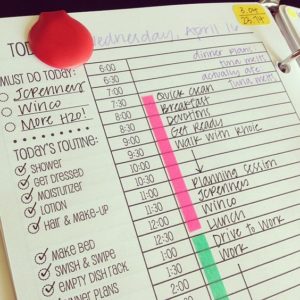 3.04
23.74
TOD
Wednesday, April 16
dinner plans:
tuna melts
actually ate:
tuna melts
MUST DO TODAY:
JCPenners
Winco
More H2O!
TODAY'S ROUTINE:
SHOWER
GET DRESSED
MOISTURIZER
LOTION
HAIR & MAKE-UP
MAKE BED
SWISH & SWIPE
EMPTY DISH RACK
DINNER PLANS
6:00
6:30
7:00 Quick clean
7:30 Breakfast
8:00 Devotions
8:30 Get Ready
9:00 Walk with Khole
9:30
10:00
10:30 Planning session
11:00 JCPenners
11:30 Winco
12:00 Lunch
12:30 Drive to Work
1:00 Work
1:30
2:00